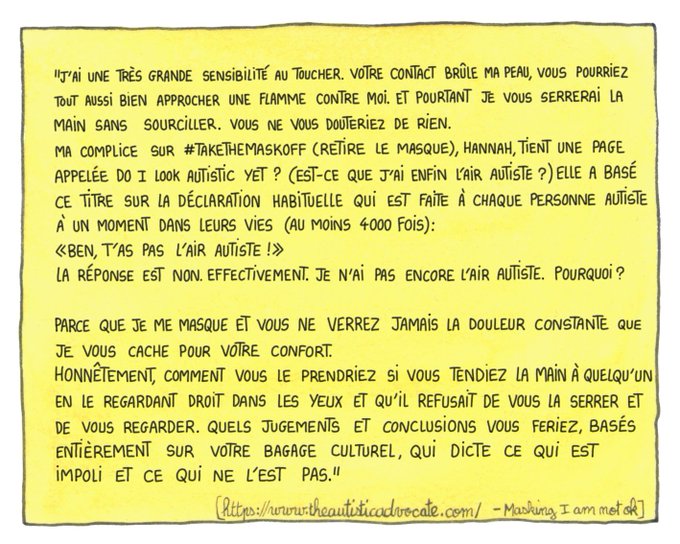 "J'AI UNE TRÈS GRANDE SENSIBILITÉ AU TOUCHER. VOTRE CONTACT BRÛLE MA PEAU, VOUS POURRIEZ
TOUT AUSSI BIEN APPROCHER UNE FLAMME CONTRE MOI. ET POURTANT JE VOUS SERRERAI LA
MAIN SANS SOURCILLER. VOUS NE VOUS DOUTERIEZ DE RIEN.
MA COMPLICE SUR #TAKETHEMASKOFF (RETIRE LE MASQUE), HANNAH, TIENT UNE PAGE
APPELÉE DO I LOOK AUTISTIC YET ? (EST-CE QUE J'AI ENFIN L'AIR AUTISTE ?) ELLE A BASÉ
CE TITRE SUR LA DÉCLARATION HABITUELLE QUI EST FAITE À CHAQUE PERSONNE AUTISTE
À UN MOMENT DANS LEURS VIES (AU MOINS 4000 FOIS):
«BEN, T'AS PAS L'AIR AUTISTE !»
LA RÉPONSE EST NON. EFFECTIVEMENT. JE N'AI PAS ENCORE L'AIR AUTISTE. POURQUOI ?
PARCE QUE JE ME MASQUE ET VOUS NE VERREZ JAMAIS LA DOULEUR CONSTANTE QUE
JE VOUS CACHE POUR VOTRE CONFORT.
HONNÊTEMENT, COMMENT VOUS LE PRENDRIEZ SI VOUS TENDIEZ LA MAIN À QUELQU'UN
EN LE REGARDANT DROIT DANS LES YEUX ET QU'IL REFUSAIT DE VOUS LA SERRER ET
DE VOUS REGARDER. QUELS JUGEMENTS ET CONCLUSIONS VOUS FERIEZ, BASÉS
ENTIÈREMENT SUR VOTRE BAGAGE CULTUREL, QUI DICTE CE QUI EST
IMPOLI ET CE QUI NE L'EST PAS."
[https://www.theautisticadvocate.com/ - Masking I am not ok]